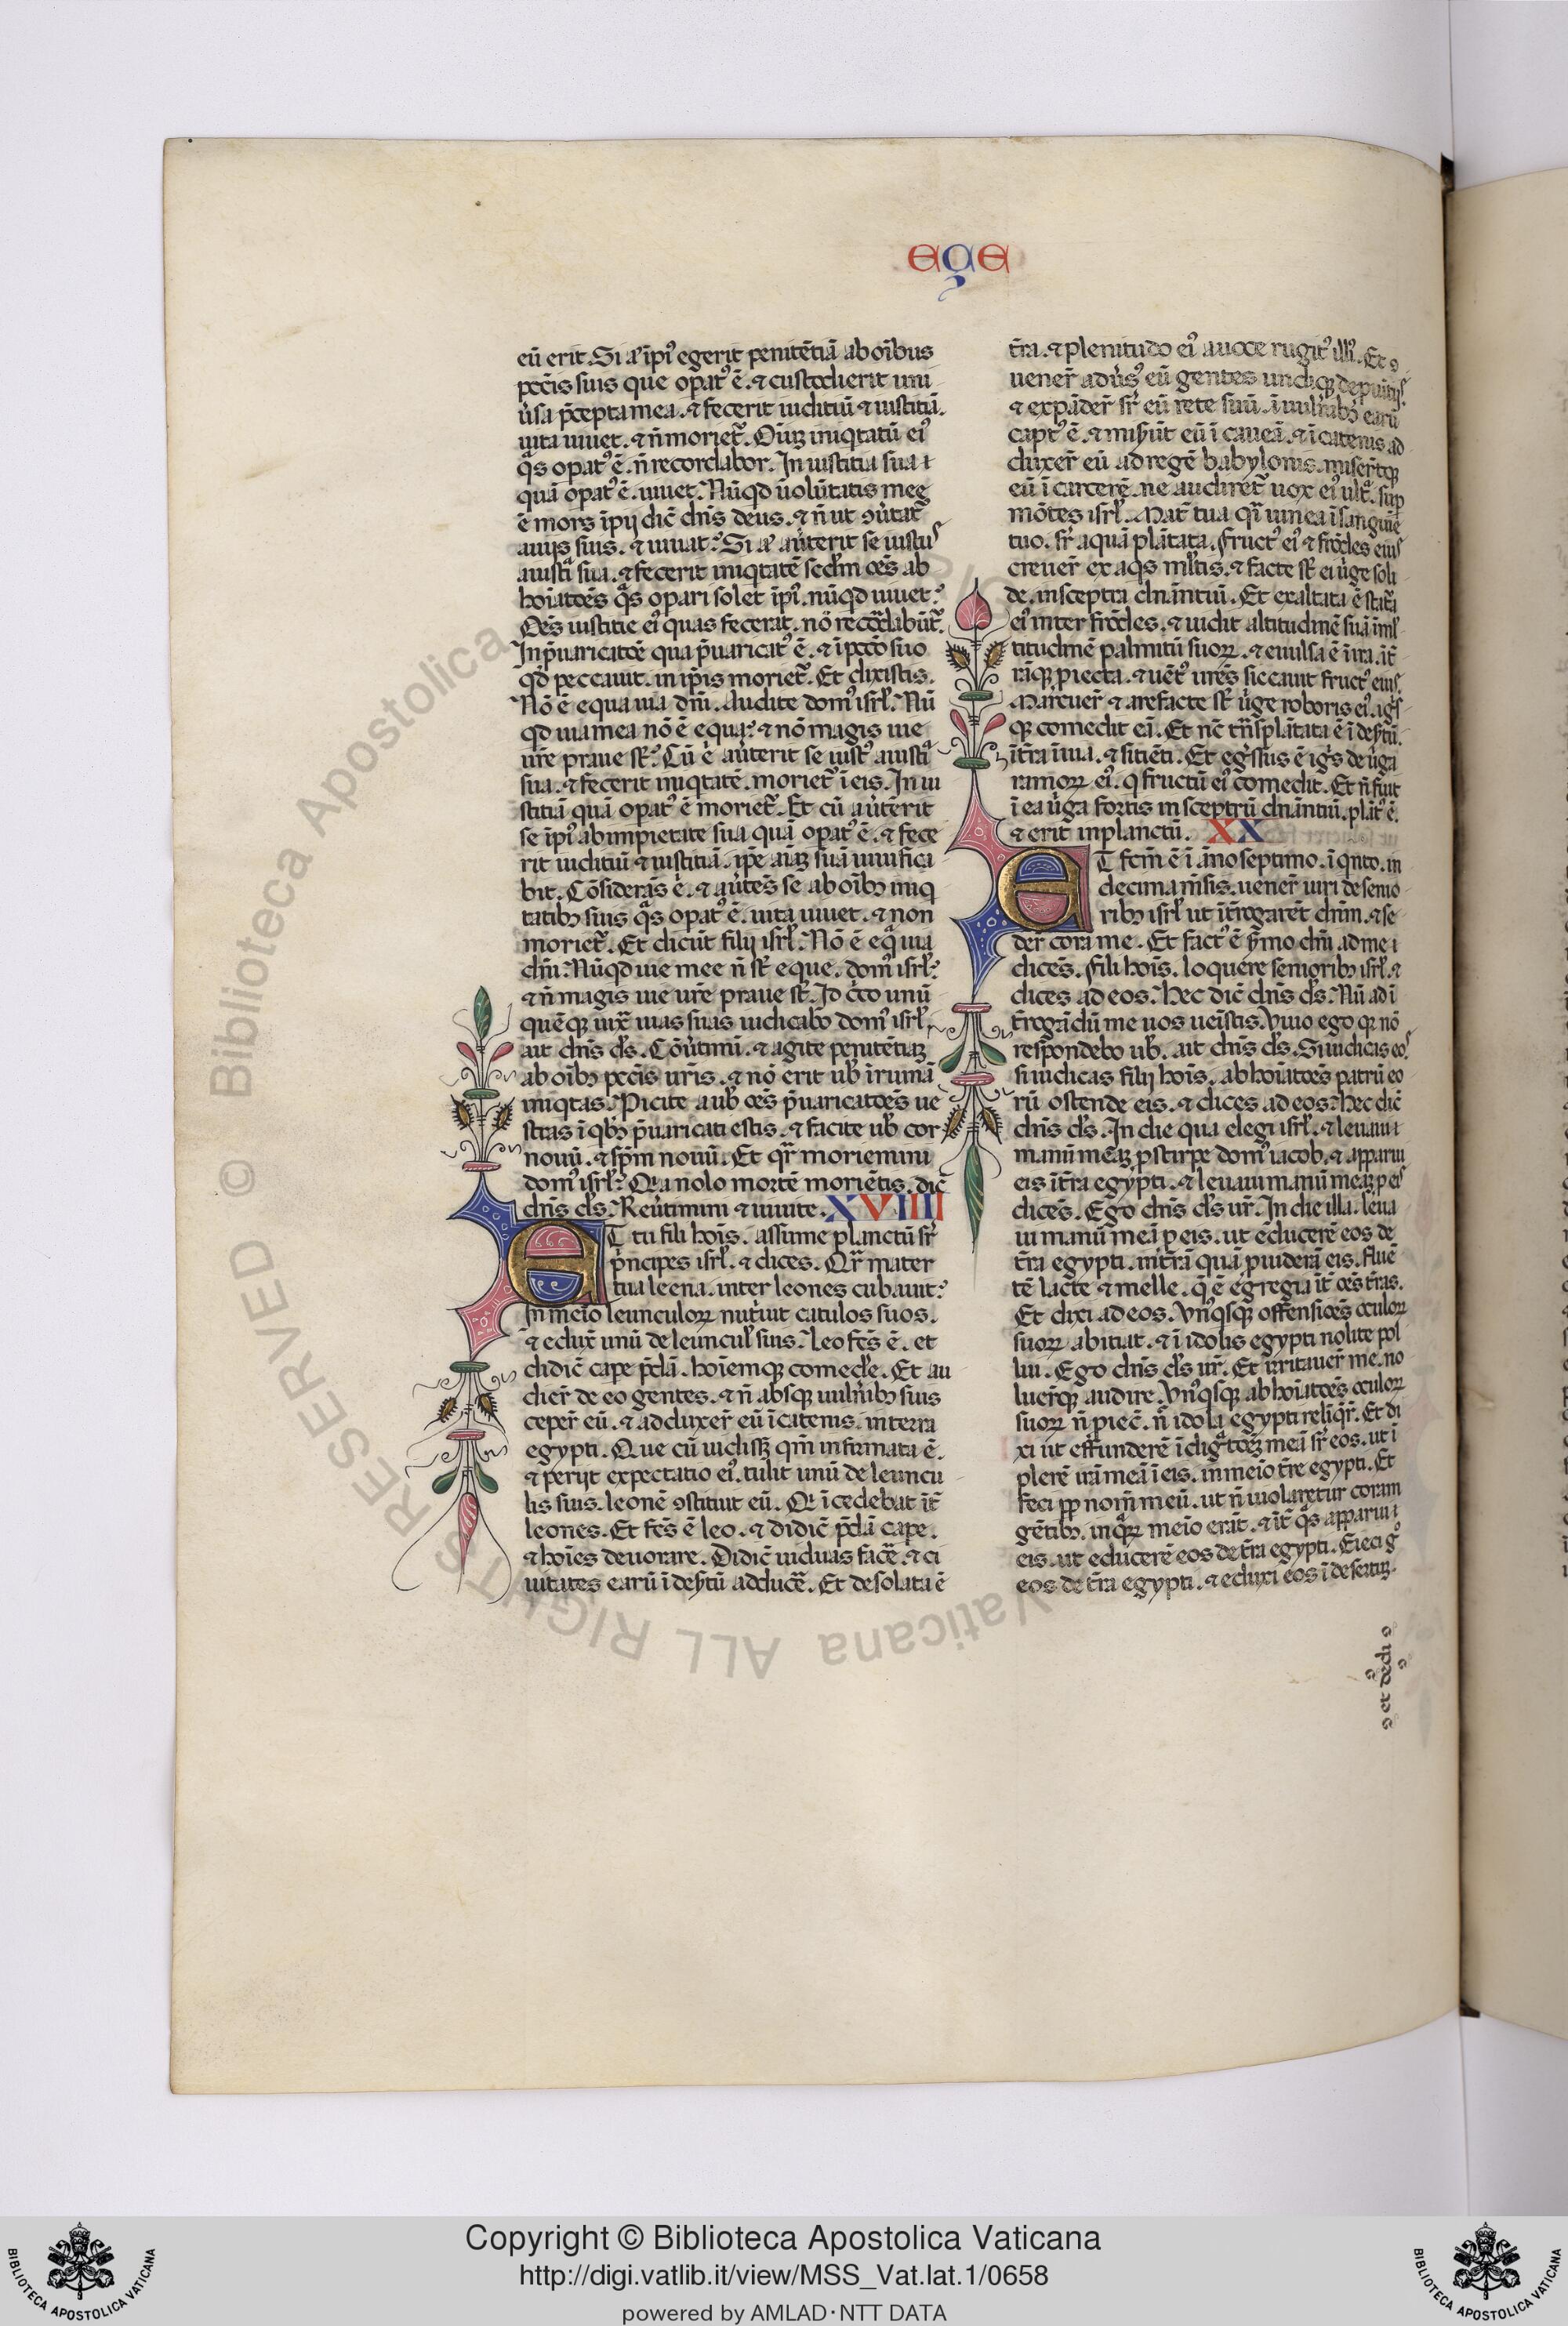 eçe
eū erit. Si aͣ īpi⁹ egerit penitētiā ab oībus
pctīs suis que opat⁹ ē. ⁊ custodierit uni
ūsa p̄cepta mea. ⁊ fecerit iuditiū ⁊ iustitiā.
uita uiuet. ⁊ n̄ moriet᷑. Oīuȝ iniqtatū ei⁹
qͣs opat⁹ ē. n̄ recordabor. In iustitia sua ı
quā opat⁹ ē. uiuet. Nūqd uolūtatis mee
ē mors īpij dic̄ dn̄s deus. ⁊ n̄ ut ꝯūtat᷑
auijs suis. ⁊ uiuat? Si aͣ aūterit se iustu⁹
aiusti sua. ⁊ fecerit iniqtatē secd̄m oēs ab
hoīatōēs qͣs opari solet īpi⁹. nūqd uiuet?
Oēs iustitie ei⁹ quas fecerat. nō recordabūt᷑.
In p̄uaricatōe qua p̄uaricat⁹ ē. ⁊ ī pctō suo
qd̄ peccauit. in ip̄is moriet᷑. Et dixistis.
Nō ē equa uia dn̄i. Audite dom⁹ isrl̄. Nū
qd uia mea nō ē equa? ⁊ nō magis uie
ur̄e praue st̄? Cū ē aūterit se iust⁹ aiusti
sua. ⁊ fecerit iniqtatē. moriet᷑ ī eis. In iu
stitiā quā opat⁹ ē moriet᷑. Et cū aūterit
se īpi⁹ ab impietate sua quā opat⁹ ē. ⁊ fece
rit iuditiū ⁊ iustitiā. ip̄e aīaȝ suā uiuifica
bit. Cōsiderās ē. ⁊ aūtēs se ab oībꝫ iniq
tatibꝫ suis qͣs opat⁹ ē. uita uiuet. ⁊ non
moriet᷑. Et dicūt filij isrl̄. Nō ē eqͣ uia
dn̄i. Nūqd uie mee n̄ st̄ eque. dom⁹ isrl̄?
⁊ n̄ magis uie ur̄e praue st̄. Id c̄co unū
quēqꝫ iux̄ uias suas iudicabo dom⁹ isrl̄.
ait dn̄s ds̄. Cōūtimī. ⁊ agite penitētiaȝ
ab oībꝫ pctīs ur̄is. ⁊ nō erit ub̄ ī ruinā
iniqtas. Picite a ub̄ oēs p̄uaricatōēs ue
stras ī qbꝫ p̄uaricati estis. ⁊ facite ub̄ cor
nouū. ⁊ sp̄m nouū. Et qr̄ moriemini
dom⁹ isrl̄? Qͣa nolo mortē moriētis. dic̄
dn̄s ds̄. Reūtimini ⁊ uiuite. XVIIII
ET tu fili hoīs. assume planctū sr̄
p̄ncipes isrl̄. ⁊ dices. Qr̄ mater
tua leena. inter leones cubauit?
In meīo leunculoꝝ nut̄uit catulos suos.
⁊ edux̄ unū de leuncul̄ suis. Leo fc̄s ē. et
didic̄ cape p̄dā. hoīemqꝫ comedē. Et au
dier̄ de eo gentes. ⁊ n̄ absqꝫ uuln̄ibꝫ suis
ceper̄ eū. ⁊ adduxer̄ eū ī catenis. in terra
egypti. Que cū uidissꝫ qm̄ infirmata ē.
⁊ perijt expectatio ei⁹. tulit unū de leuncu
lis suis. leonē ꝯstituit eū. Qi īcedebat īt̄
leones. Et fc̄s ē leo. ⁊ didic̄ p̄dā cape.
⁊ hoīes deuorare. Didic̄ uiduas facē. ⁊ ci
uitates earū ī des̄tū adducē. Et desolata ē
t̄ra. ⁊ plenitudo ei⁹ a uoce rugit⁹ illi⁹. Et ꝯ
uener̄ adūs⁹ eū gentes undiqꝫ de puīcijs.
⁊ expāder̄ sr̄ eū rete suū. ī uuln̄ibꝫ earū
capt⁹ ē. ⁊ mis̄ūt eū ī caueā. ⁊ ī catenis ad
duxer̄ eū ad regē babylonis. miser̄tqꝫ
eū ī carcerē. ne audiret᷑ uox ei⁹ ultͣ. sup
mōtes isrl̄. Mat̄ tua qͣi uinea ī sanguīe
tuo. sr̄ aquā plātata. fruct⁹ ei⁹ ⁊ frōdes eius
creuer̄ ex aqs ml̄tis. ⁊ facte st̄ ei ūge soli
de. in sceptra dn̄antiū. Et exaltata ē stat̄a
ei⁹ inter frōdes. ⁊ uidit altitudinē suā ī ml̄
titudinē palmitū suoꝝ. ⁊ euulsa ē ī ira. īt̄
rāqꝫ piecta. ⁊ uēt⁹ urēs siccauit fructū eius.
Marcuer̄ ⁊ arefacte st̄ ūge roboris ei⁹. ignis
qꝫ comedit eā. Et nc̄ tr̄nsplātata ē ī des̄tū.
ī t̄ra īuia. ⁊ sitiēti. Et egssus ē ignis de ūga
ramoꝝ ei⁹. q fructū ei⁹ comedit. Et n̄ fuit
ī ea ūga fortis in sceptrū dn̄antiū. plāt⁹ ē.
⁊ erit in planctū. XX
ET fcm̄ ē ī āno septimo. ī qnto. in
decima m̄sis. uener̄ uiri de senio
ribꝫ isrl̄ ut īt̄rogarēt dn̄m. ⁊ se
der̄ corā me. Et fact⁹ ē s̄mo dn̄i ad me ı
dicēs. Fili hoīs. loquere senioribꝫ isrl̄. ⁊
dices ad eos. Hec dic̄ dn̄s ds̄. Nū ad ī
t̄rogādū me uos ueīstis. Viuo ego qꝫ nō
respondebo ub̄. ait dn̄s ds̄. Si iudicas eo⁹
si iudicas filij hoīs. abhoīatōēs patrū eo
rū ostende eis. ⁊ dices ad eos. Hec dic̄
dn̄s ds̄. In die qua elegi isrl̄. ⁊ leuaui ı
manū meāȝ p stirpe dom⁹ iacob. ⁊ apparui
eis ī t̄ra egypti. ⁊ leuaui manū meāȝ p eis
dicēs. Ego dn̄s ds̄ ur̄. In die illa. leua
ui manū meā p eis. ut educerē eos de
t̄ra egypti. in t̄rā quā puiderā eis. flué
tē lacte ⁊ melle. q̄ ē egregia īt̄ oēs t̄ras.
Et dixi ad eos. Vn⁹qsqꝫ offensiōēs oculoꝝ
suoꝝ abiciat. ⁊ ī idolis egypti nolite pol
lui. Ego dn̄s ds̄ ur̄. Et irritauer̄ me. no
luer̄qꝫ audire. Vn⁹qsqꝫ abhoīatōēs oculoꝝ
suoꝝ n̄ piec̄. n̄ idola egypti reliqr̄. Et di
xi ut effunderē ī dignͣtōēȝ meā sr̄ eos. ut ī
plerē irā meā ī eis. in meīo t̄re egypti. Et
feci ꝓꝑ nom̄ meū. ut n̄ uiolaretur coram
gētibꝫ. in qͣꝝ meīo erāt. ⁊ īt̄ qͣs apparui ı
eis. ut educerē eos de t̄ra egypti. Eieci gͦ
eos de t̄ra egypti. ⁊ eduxi eos ī desertuȝ.
et dedi
Biblioteca Apostolica Vaticana ALL RIGHTS RESERVED ©
Copyright © Biblioteca Apostolica Vaticana
http://digi.vatlib.it/view/MSS_Vat.lat.1/0658
powered by AMLAD·NTT DATA
BIBLIOTECA APOSTOLICA VATICANA
BIBLIOTECA APOSTOLICA VATICANA